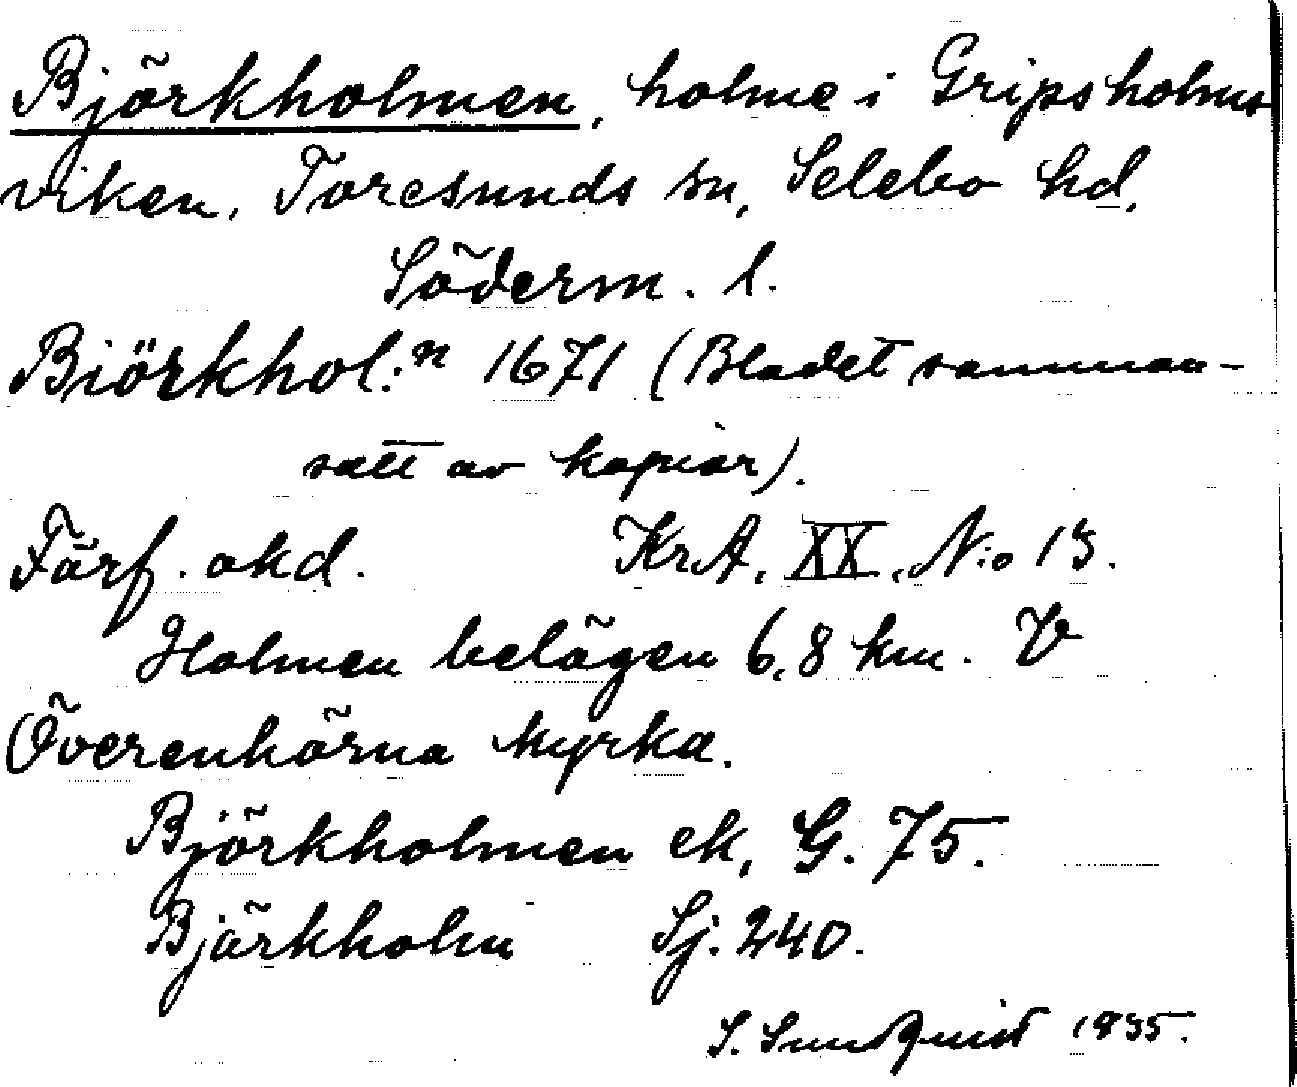 Björkholmen, holme i Gripsholms
viken. Toresunds sn, Selebo hd,
Söderm. l.
Biörkhol:n 1671 (Bladet samman-
satt av kopior).
Förf. okd. KrA, XX, N:o 13.
Holmen belägen 6,8 km. V
Överenhörna kyrka.
Björkholmen ek, G. 75.
Björkholm Sj. 240.
S. Sundquist 1935.